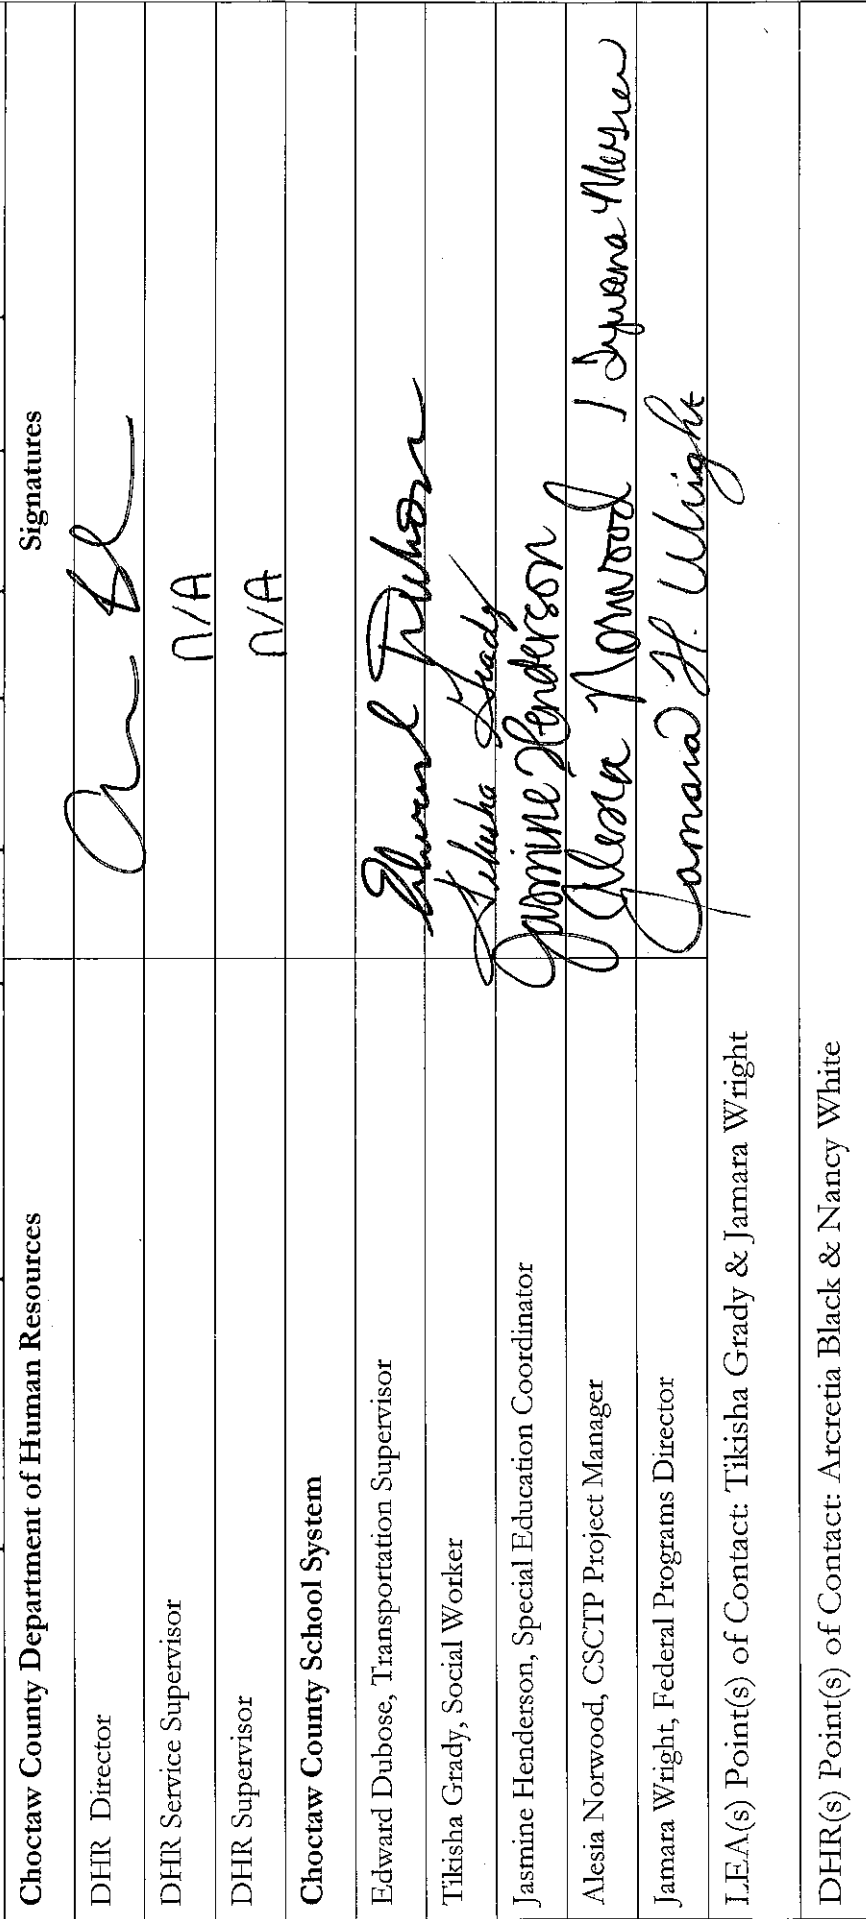 Choctaw County Department of Human Resources Signatures
DHR Director
DHR Service Supervisor n/A
DHR Supervisor n/A
Choctaw County School System
Edward Dubose, Transportation Supervisor Edward
Tikisha Grady, Social Worker Tikisha Grady
Jasmine Henderson, Special Education Coordinator Jasmine Henderson
Alesia Norwood, CSCTP Project Manager Alesia Norwood /
Jamara Wright, Federal Programs Director Jamara H. Wright
LEA(s) Point(s) of Contact: Tikisha Grady & Jamara Wright
DHR(s) Point(s) of Contact: Arcretia Black & Nancy White